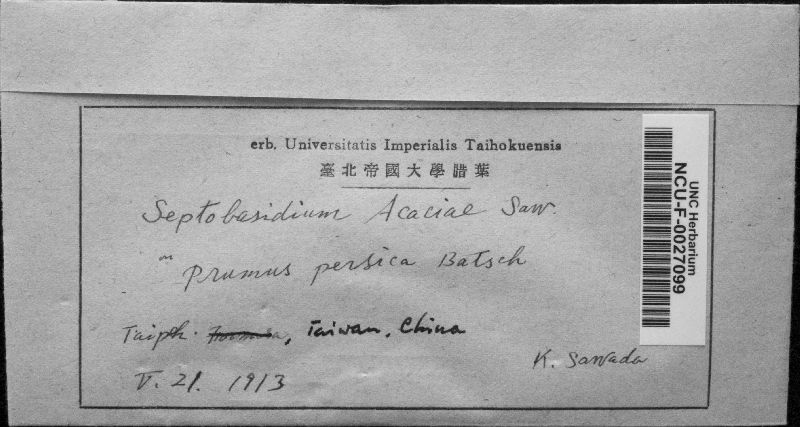 erb. Universitatis Imperialis Taihokuensis
臺北帝國大學腊葉
Septobasidium Acaciae Saw.
on Prumus persica Batsch
Taiph. Formosa, Taiwan, China
V. 21. 1913
K. Sawada
UNC Herbarium
NCU-F-0027099